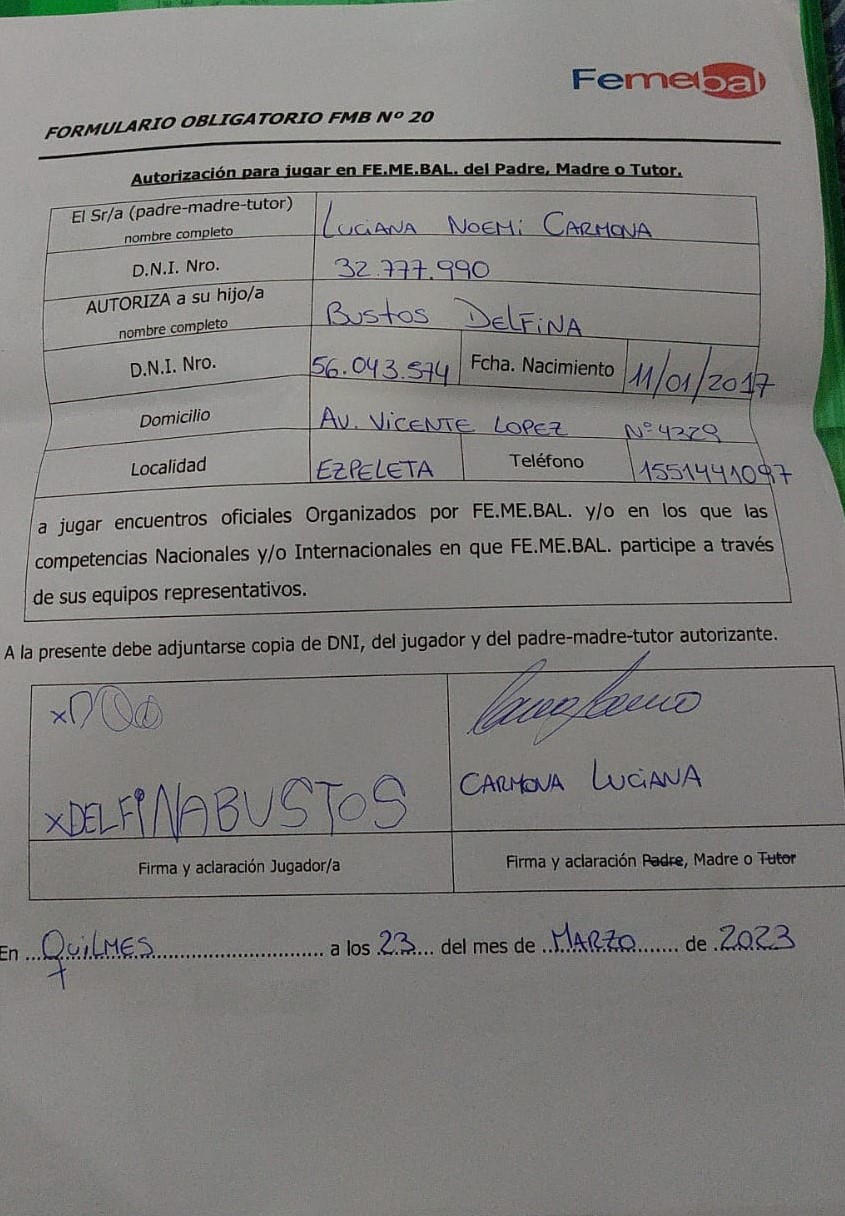 Femebal
FORMULARIO OBLIGATORIO FMB Nº 20
Autorización para jugar en FE.ME.BAL. del Padre, Madre o Tutor.
El Sr/a (padre-madre-tutor)
nombre completo
LUCIANA NOEMI CARMONA
D.N.I. Nro.
32.777.990
AUTORIZA a su hijo/a
nombre completo
BUSTOS DELFINA
D.N.I. Nro.
56.043.574
Fcha. Nacimiento
11/01/2017
Domicilio
AV. VICENTE LOPEZ Nº 4229
Localidad
EZPELETA
Teléfono
1551441097
a jugar encuentros oficiales Organizados por FE.ME.BAL. y/o en los que las
competencias Nacionales y/o Internacionales en que FE.ME.BAL. participe a través
de sus equipos representativos.
A la presente debe adjuntarse copia de DNI, del jugador y del padre-madre-tutor autorizante.
x
xDELFINA BUSTOS
CARMONA LUCIANA
Firma y aclaración Jugador/a
Firma y aclaración Padre, Madre o Tutor
En ...QUILMES............................... a los .23.... del mes de ..MARZO....... de .2023